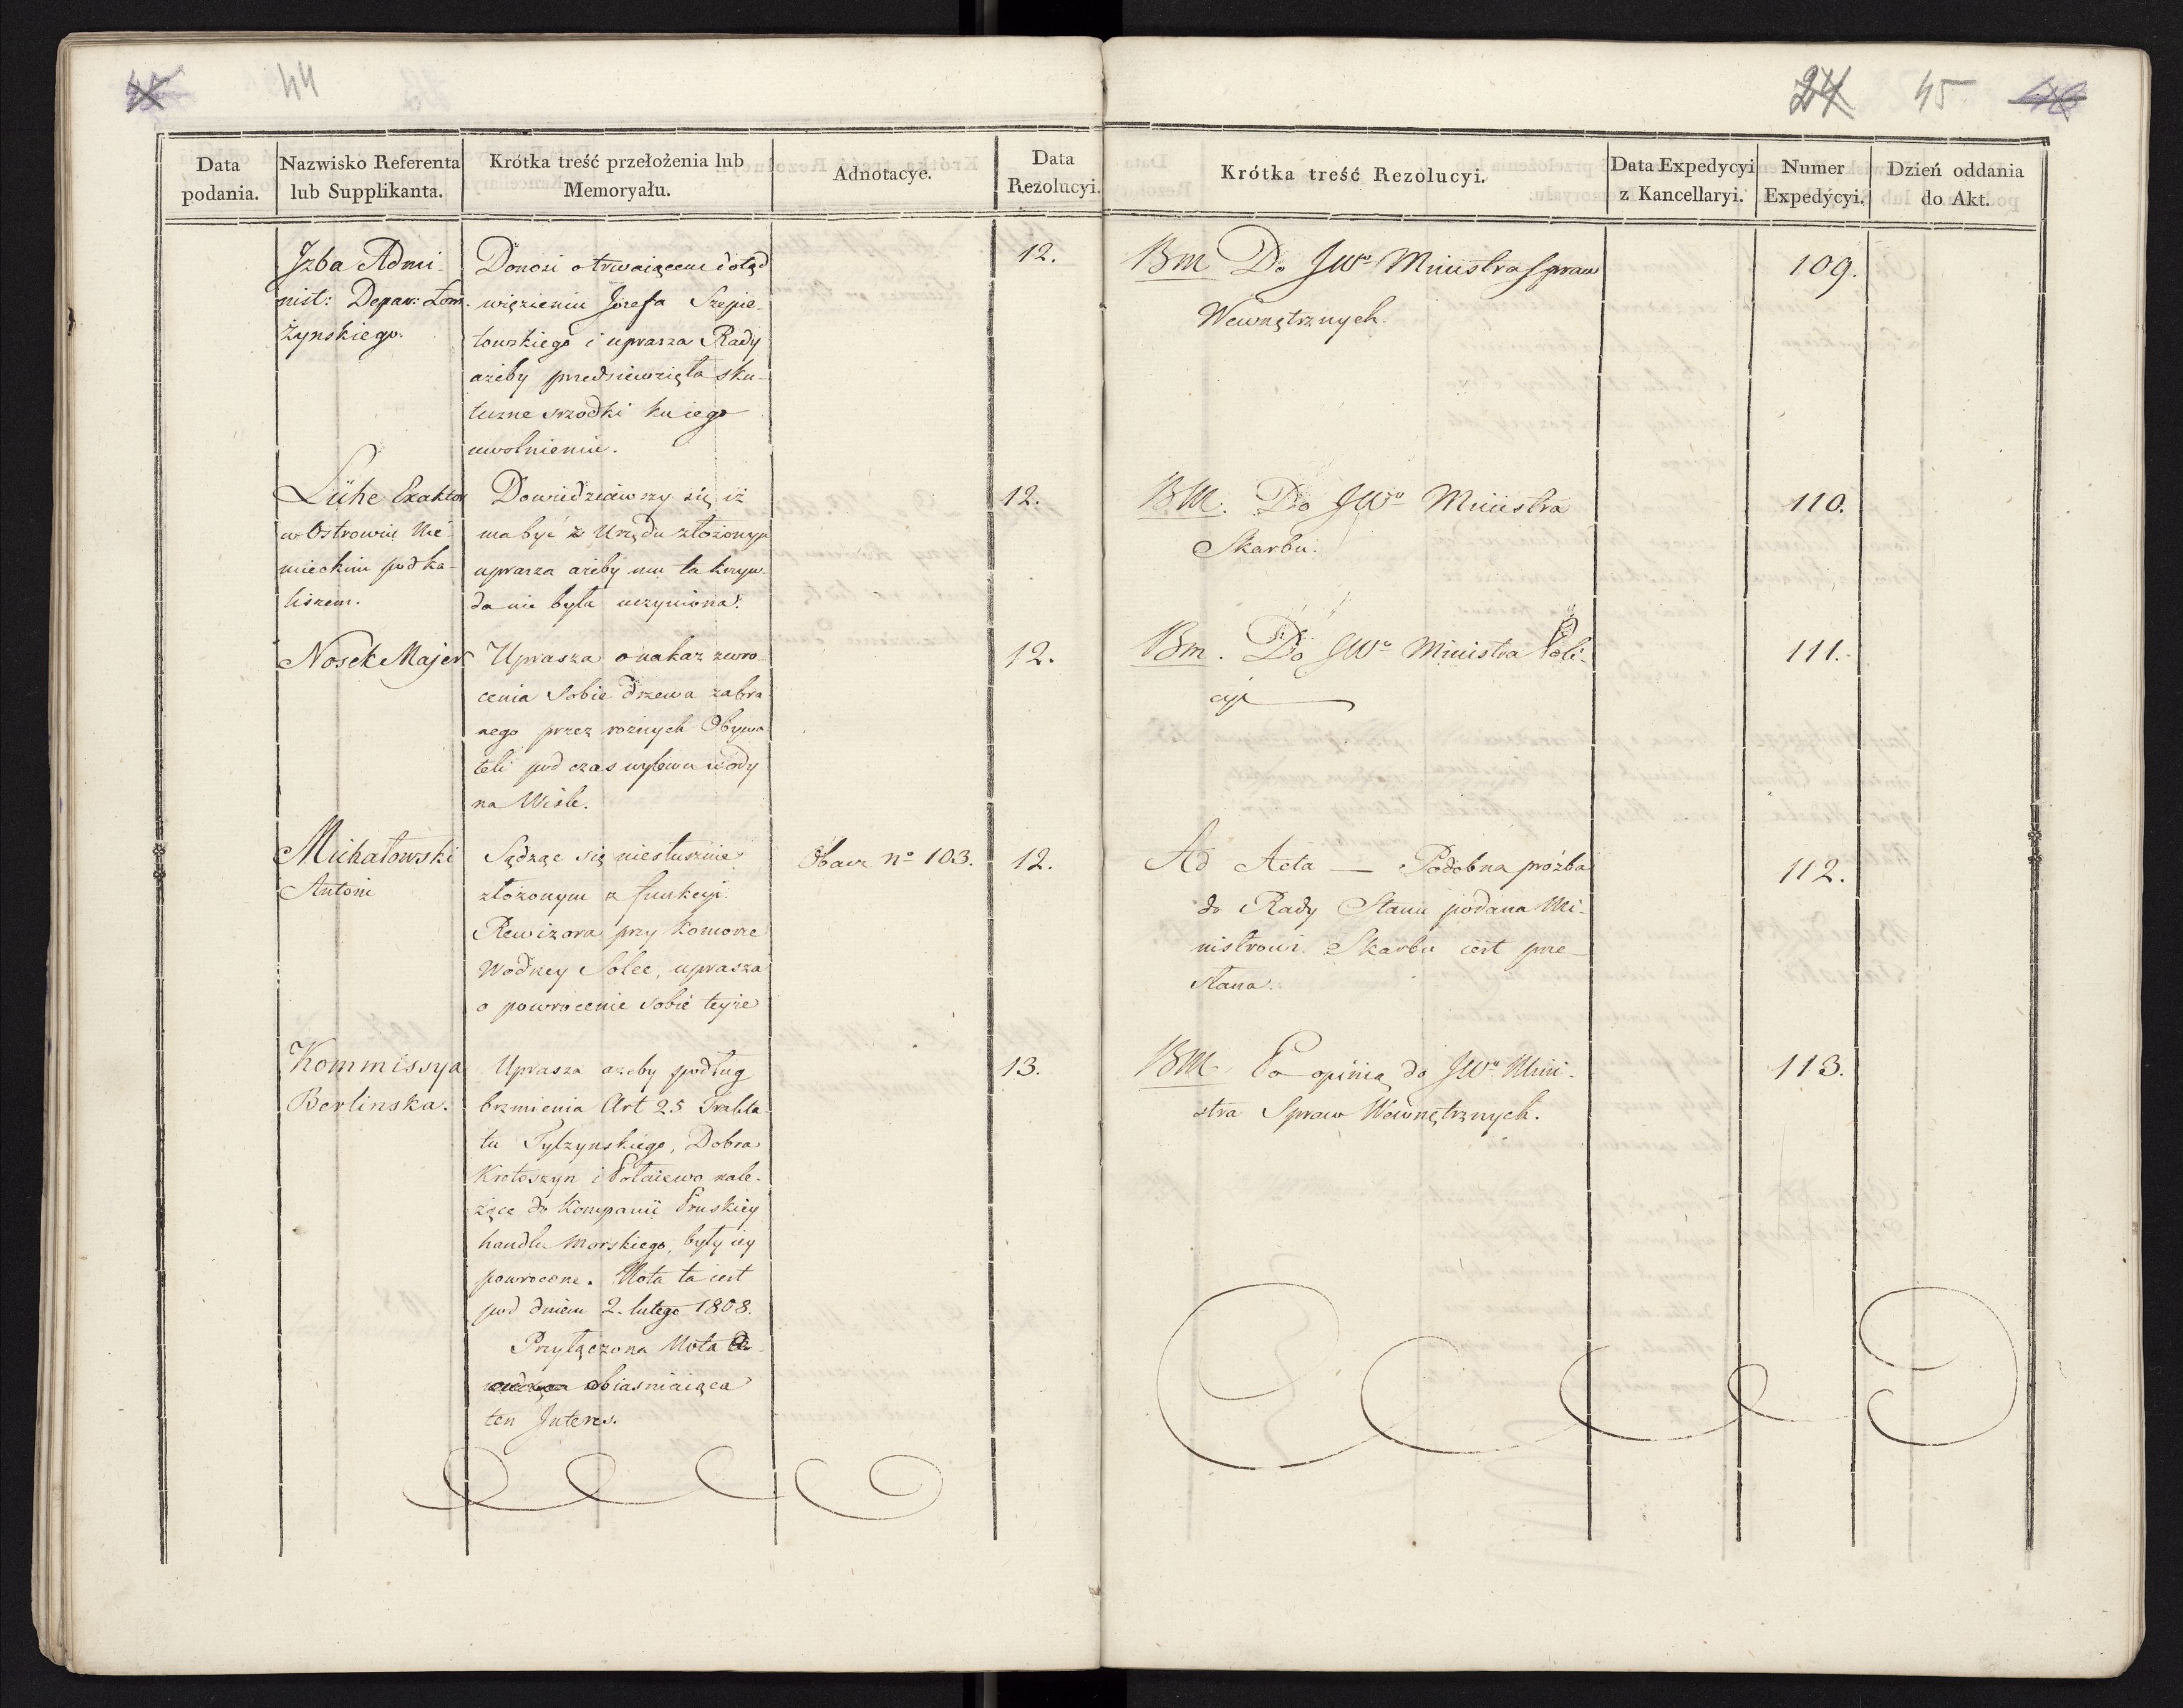 44
24 45 46
Data podania.
Nazwisko Referenta lub Supplikanta.
Krótka treść przełożenia lub Memoryału.
Adnotacye.
Data Rezolucyi.
Krótka treść Rezolucyi.
Data Expedycyi z Kancellaryi.
Numer Expedycyi.
Dzień oddania do Akt.
Jzba Admi-
nist: Depar: Łom-
żynskiego.
Donosi o trwaiącem dotąd
więzieniu Jozefa Szepie-
towskiego i uprasza Rady
ażeby przedsiewzięła sku-
teczne srzodki ku iego
uwolnieniu.
12.
BM Do JWo Ministra Spraw
Wewnętrznych.
109.
Lühe Exaktor
w Ostrowiu Nie-
mieckim pod Ka-
liszem.
Dowiedziawszy się iż
ma być z Urzędu złożonym
uprasza ażeby mu ta krzyw-
da nie była uczyniona.
12.
BM. Do JWo Ministra
Skarbu.
110.
Nosek Majer
Uprasza o nakaz zwro-
cenia sobie drzewa zabra
nego przez rożnych Obywa
teli pod czas wylewu wody
na Wiśle.
12.
BM. Do JWo Ministra Poli-
cyi
111.
Michałowski
Antoni
Sądząc się niesłusznie
złożonym z funkcyi
Rewizora przy Komorze
Wodney Solec, uprasza
o powrocenie sobie teyże
Obacz No 103.
12.
Ad Acta — Podobna proźba
do Rady Stanu podana Mi-
nistrowi Skarbu iest prze-
słana.
112.
Kommissya
Berlinska.
Uprasza ażeby podług
brzmienia Art 25 Trakta-
tu Tylzynskiego, Dobra
Krotoszyn i Połaiewo nale-
żące do Kompanii Pruskiey
handlu Morskiego, były iey
powrocone. Nota ta iest
pod dniem 2. lutego 1808.
Przyłączona Nota
obiasniaiąca
ten Jnteres.
13.
BM Po opinią do JWo Mini-
stra Spraw Wewnętrznych.
113.